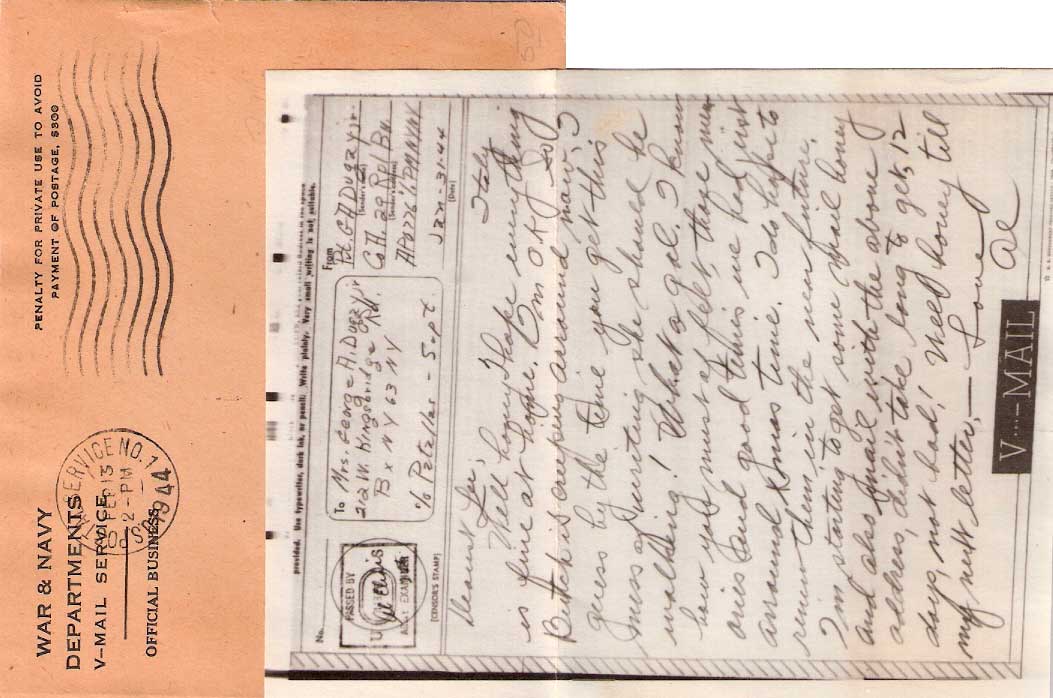 WAR & NAVY
DEPARTMENTS
V-MAIL SERVICE
OFFICIAL BUSINESS
SERVICE NO. 1
FEB 13
2-PM
1944
PENALTY FOR PRIVATE USE TO AVOID
PAYMENT OF POSTAGE, $300
provided. Use typewriter, dark ink, or pencil. Write plainly. Very small writing is not suitable.
No.
PASSED BY
EXAMINER
(CENSOR'S STAMP)
To Mrs. George A. Duggy jr
22 W. Kingsbridge Rd.
Bx N Y 63 N Y
c/o Petellas - Supt.
From
Pvt. G A Duggy jr.
(Sender's name)
Co A. 29 Repl Bn.
(Sender's address)
APO 776 % PM NYNY
Jan-31-44
(Date)
Italy
Dearest
Well honey I hope everything
is fine at home. I'm O.K. so
Butch is creeping around now?
guess by the time you get this
mess of writing she should be
walking! What a gal. I know
how you must of felt, those
ones and good times we had just
around Xmas time. I do hope to
renew them in the near future.
I'm starting to get some mail honey
and also Vmail with the above
address, didn't take long to get, 12
days, not bad! Well honey till
my next letter, —
Love
Al
V····—MAIL